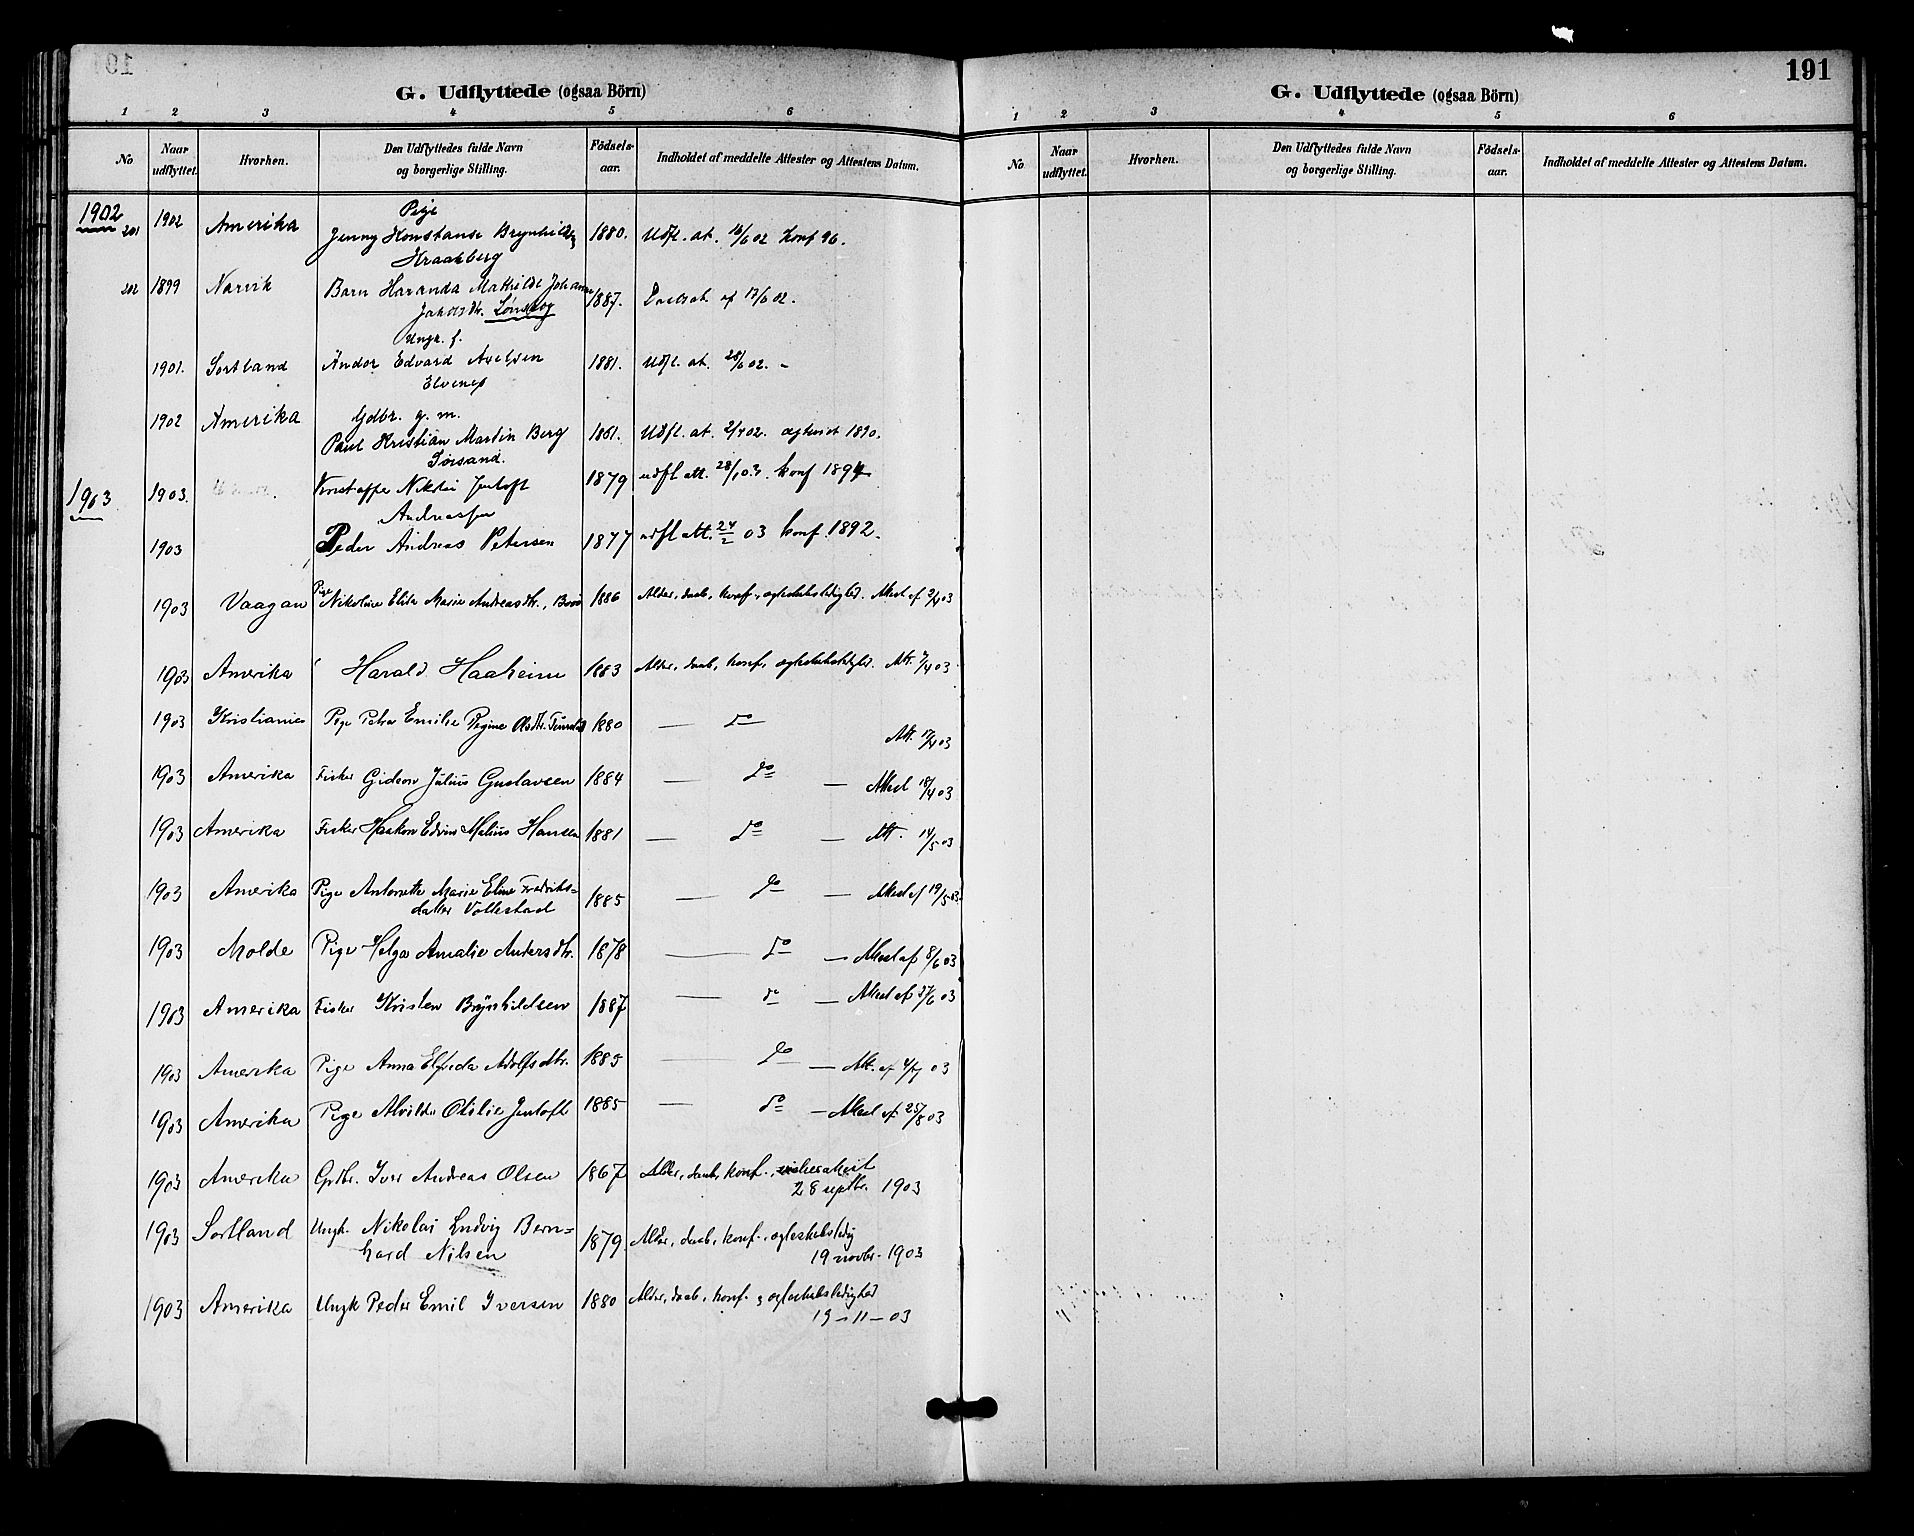 191
G. Udflyttede (ogsaa Börn)
1 2 3 4 5 6
No Naar udflyttet. Hvorhen. Den Udflyttedes fulde Navn og borgerlige Stilling. Födsels-aar. Indholdet af meddelte Attester og Attestens Datum.
1902 Pige
201 1902 Amerika Jenny Konstanse 1880. Udfl. at. 16/6 02 Konf 96.
Kraakberg
202 1899 Narvik Barn Haranda Mathilde Johanna 1887. 17/6 02.
Ungk. f.
1901. Sortland Andor Edvard Axelsen 1881. Udfl. at. 28/6 02. -
Elvenes
1902 Amerika Gdbr. g. m.
Paul Kristian Martin Berg 1861. Udfl. at. 2/4 02. 1890.
Sørsand.
1903 1903. Nikolai Jentoft 1879 udfl att. konf 1894
Andreassen
1903 Peder Andreas Petersen 1877 udfl att. 24/2 03 konf. 1892.
1903 Vaagan Pige Nikoline Elida Marie Andreasdtr., 1886 Alder, daab, konf., Attest af 2/4 03
1903 Amerika Harald Haaheim 1883 Alder, daab, konf, Att. 7/4 03
1903 Kristiania Pige Petra Emilie Regine Olsdtr. 1880 — do —
Att. 17/4 03
1903 Amerika Fisker Gideon Julius Gustavsen 1884 — do — Attest 18/4 03
1903 Amerika Fisker Haakon Edvin Melius Hansen 1881 — do — Att. 14/5 03
1903 Amerika Pige Antonette Marie Eline Fredriks=
datter Vollestad 1885 — do — Attest af 19/5 03.
1903 Molde Pige Helga Amalie Andersdtr. 1878 — do — Attest af 8/6 03
1903 Amerika Fisker Kristen Brynhildsen 1887 — do — Attest af 27/6 03
1903 Amerika Pige Anna Elfrida Adolfsdtr. 1885 — do — Att. af 4/7 03
1903 Amerika Pige Alvilde Otilie Jentoft 1885 — do — Attest af 25/8 03
1903 Amerika Gdbr. Iver Andreas Olsen 1867 Alder, daab, konf.,
28 septbr. 1903
1903 Sortland Ungk. Nikolai Ludvig Bern=
hard Nilsen 1879. Alder, daab, konf., ægteskabsledig
19 novbr. 1903
1903 Amerika Ungk Peder Emil Iversen 1880 Alder, daab, konf. og ægteskabsledighed
19 – 11 – 03
191
G. Udflyttede (ogsaa Börn)
1 2 3 4 5 6
No Naar udflyttet. Hvorhen. Den Udflyttedes fulde Navn og borgerlige Stilling. Födsels-aar. Indholdet af meddelte Attester og Attestens Datum.